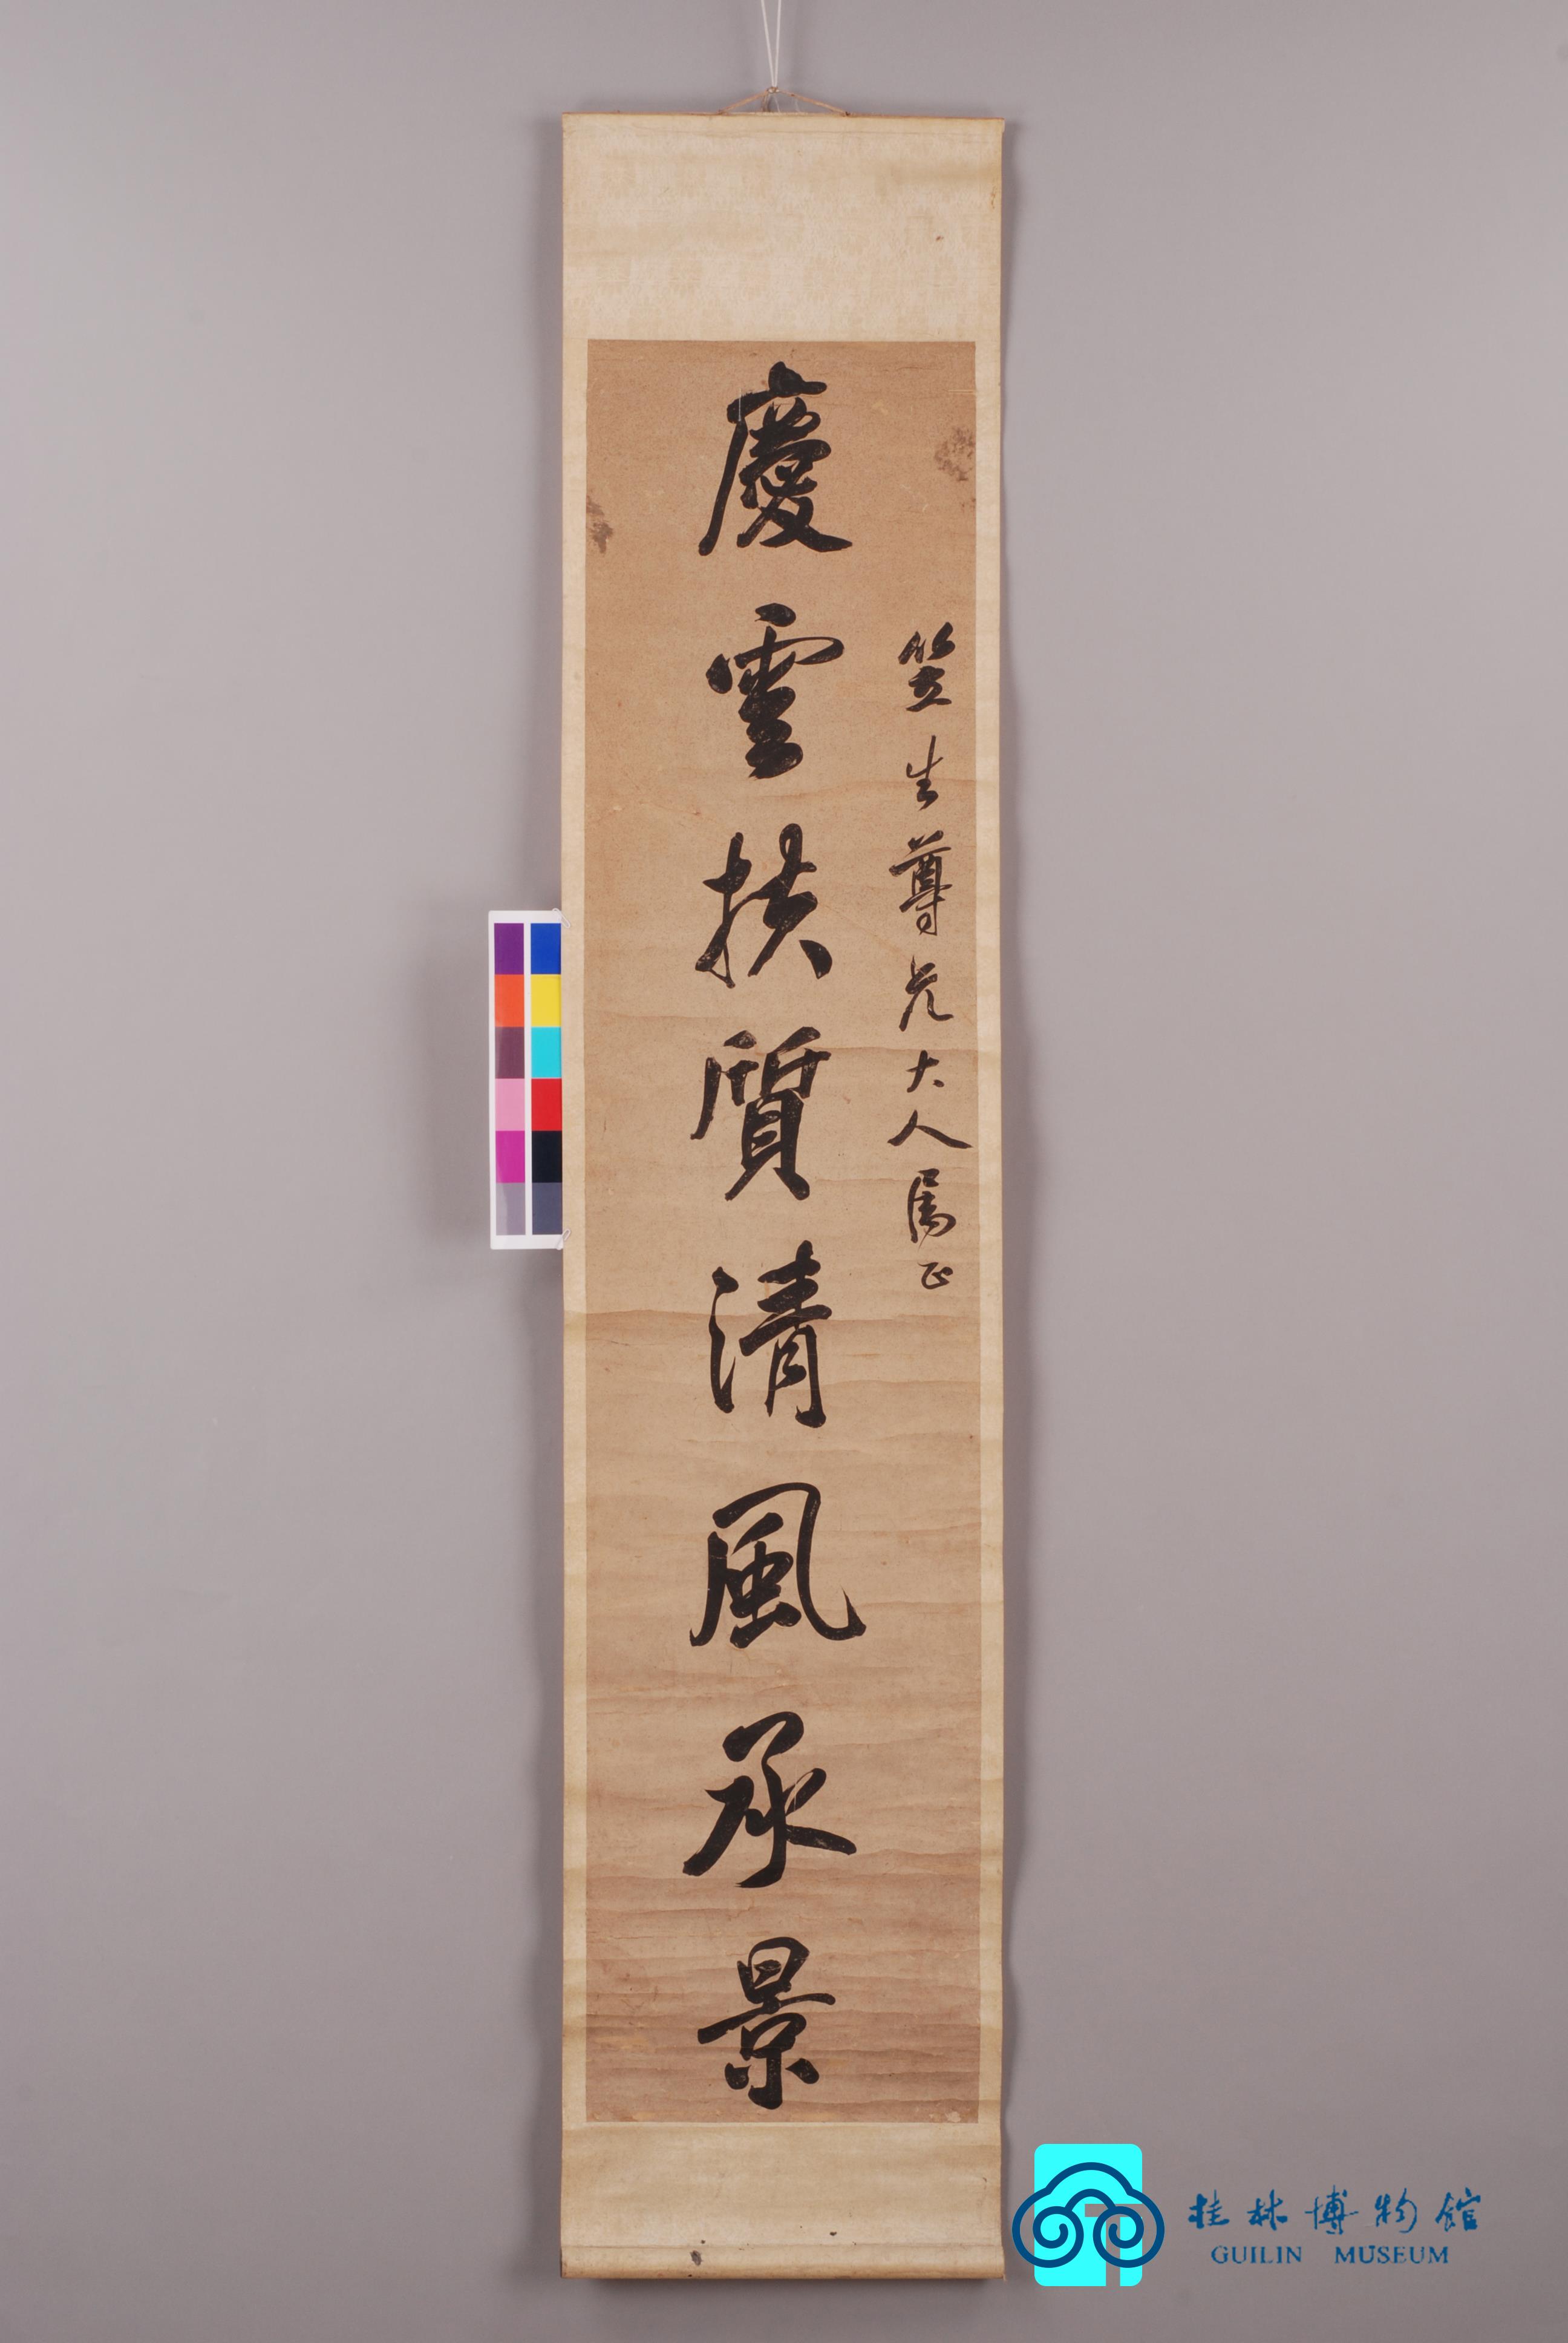 笠生尊兄大人属正
慶雲扶質清風承景
桂林博物馆
GUILIN MUSEUM